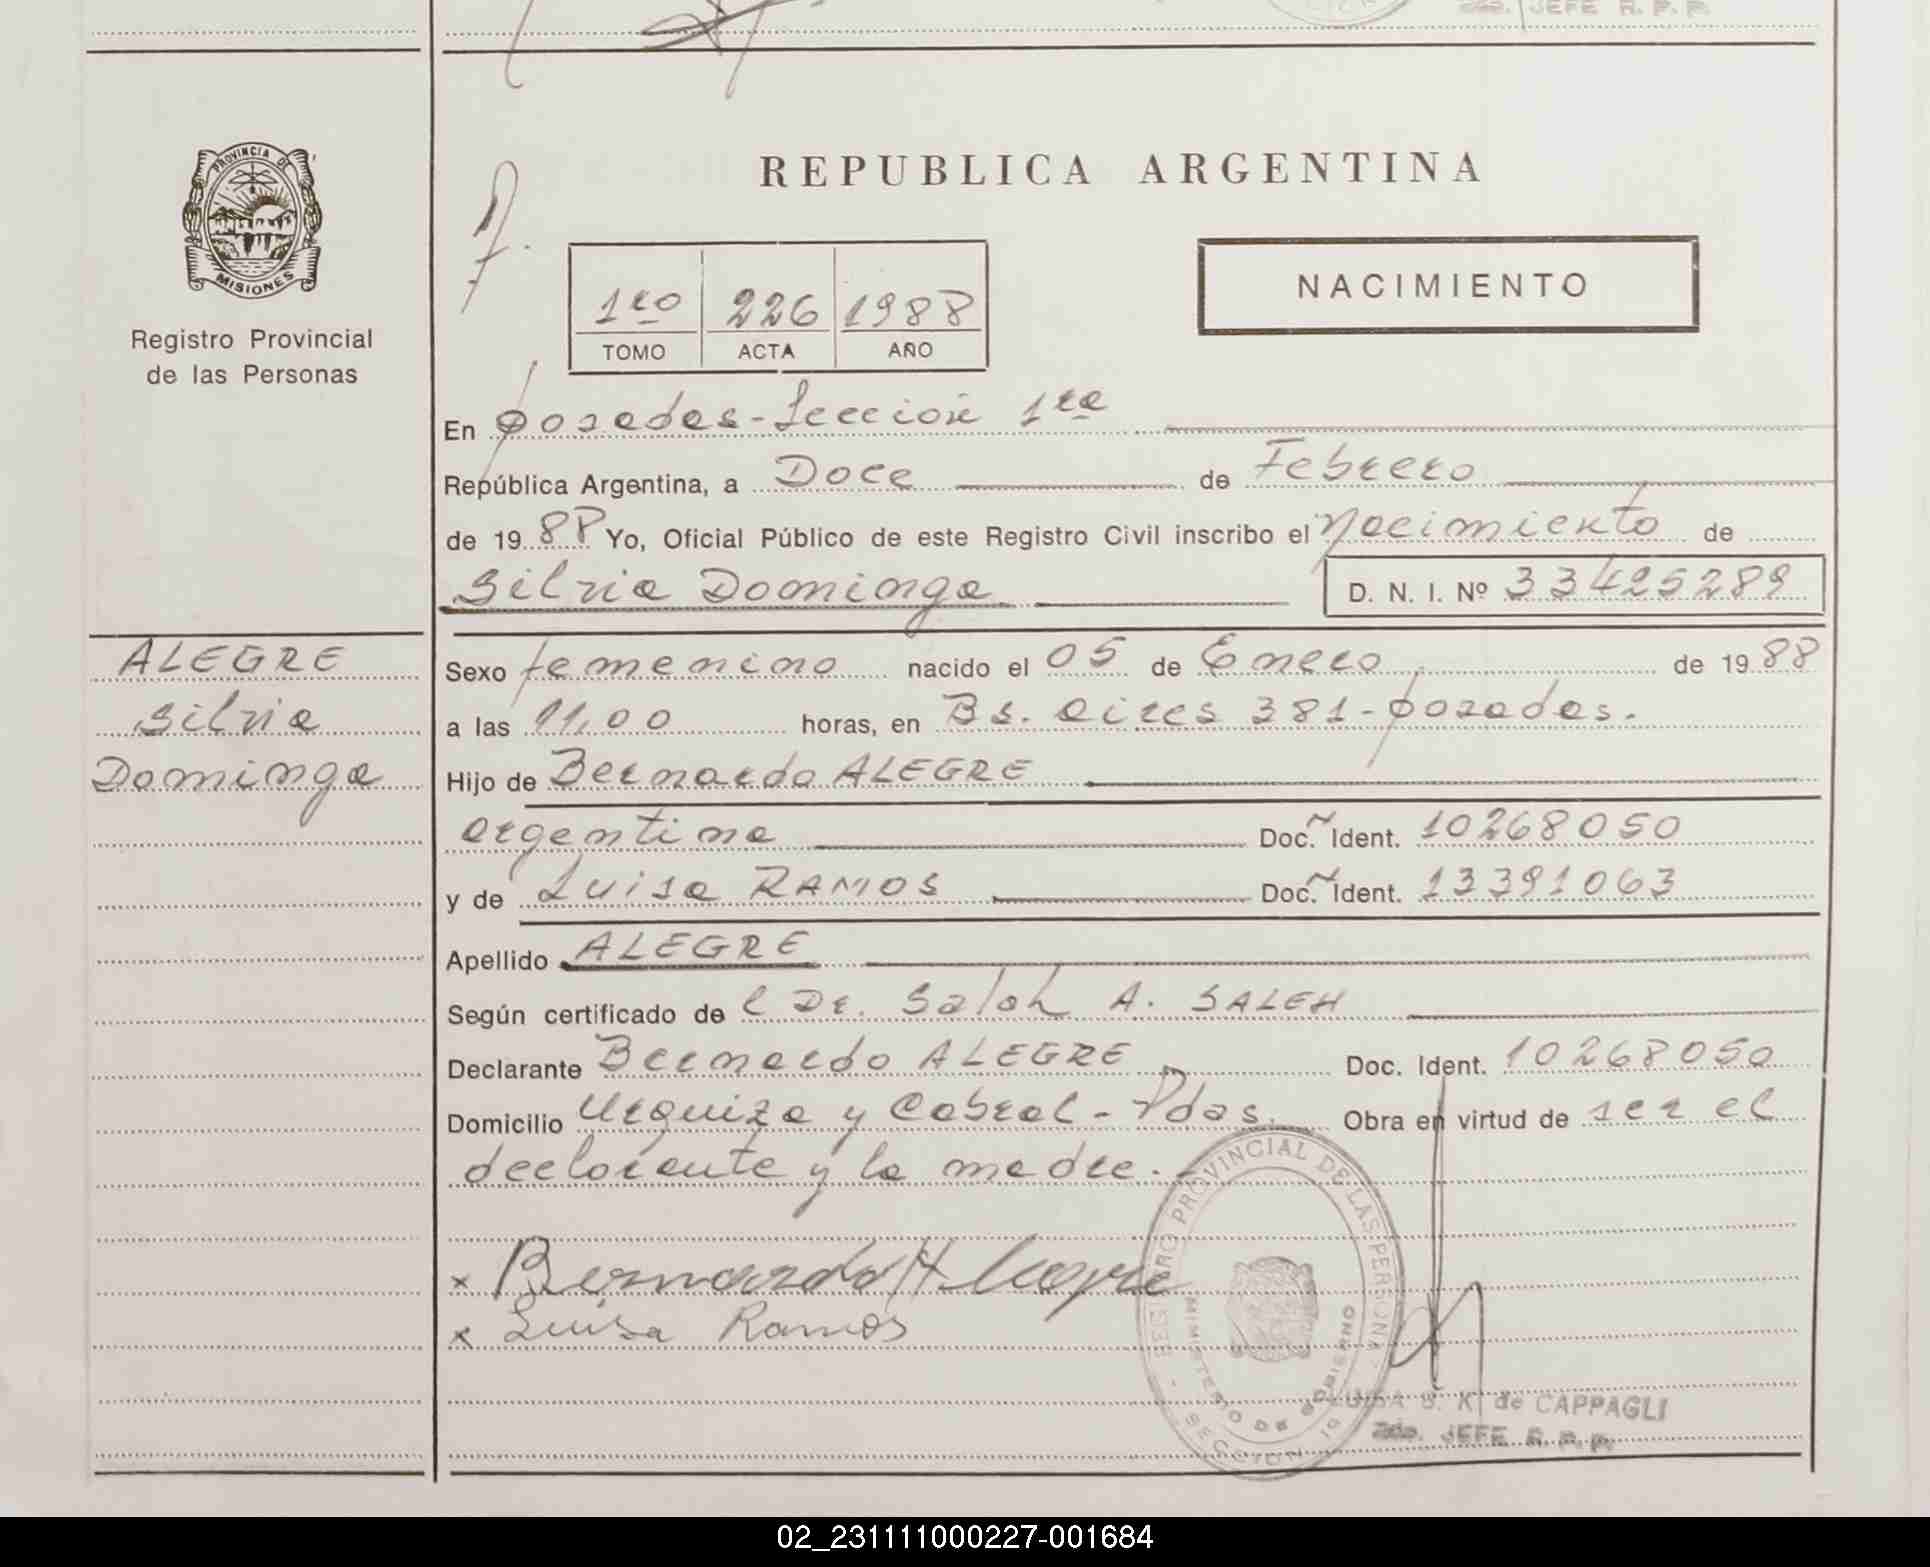 2do. JEFE R. P. P.
PROVINCIA DE
MISIONES
Registro Provincial
de las Personas
REPUBLICA ARGENTINA
1ro 226 1988
TOMO ACTA AÑO
NACIMIENTO
En Posadas - Sección 1ra
República Argentina, a Doce de Febrero
de 1988 Yo, Oficial Público de este Registro Civil inscribo el Nacimiento de
Silvia Dominga D. N. I. Nº 33425289
ALEGRE
Silvia
Dominga
Sexo femenino nacido el 05 de Enero de 1988
a las 11,00 horas, en Bs. Aires 381 - Posadas.
Hijo de Bernardo ALEGRE
argentino Doc. Ident. 10268050
y de Luisa RAMOS Doc. Ident. 13391063
Apellido ALEGRE
Según certificado de l Dr. Salah A. SALEH
Declarante Bernardo ALEGRE Doc. Ident. 10268050
Domicilio Urquiza y Cabral - Pdas. Obra en virtud de ser el
declarante y la madre. -
x Bernardo H Alegre
x Luisa Ramos
REGISTRO PROVINCIAL DE LAS PERSONAS
MINISTERIO DE GOBIERNO
SECCION 1a
LUISA B. K. de CAPPAGLI
2do. JEFE R. P. P.
02_231111000227-001684